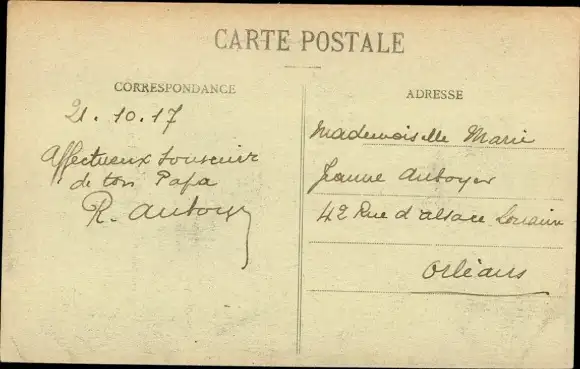 CARTE POSTALE
CORRESPONDANCE
21.10.17
Affectueux souvenir
de ton Papa
R. Auboyer
ADRESSE
Mademoiselle Marie
Jeanne Auboyer
42 Rue d'alsace Lorraine
Orléans